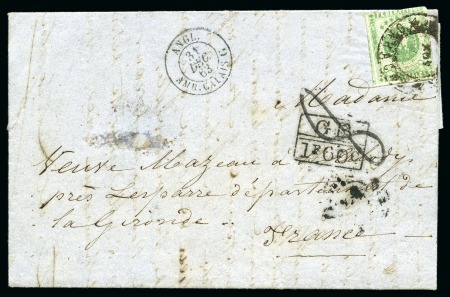 ANGL.
31
DEC
63
AMB. CALAIS G
Madame
GB
1F60c
Veuve Mazeau a
près Lesparre département de
la Gironde
France